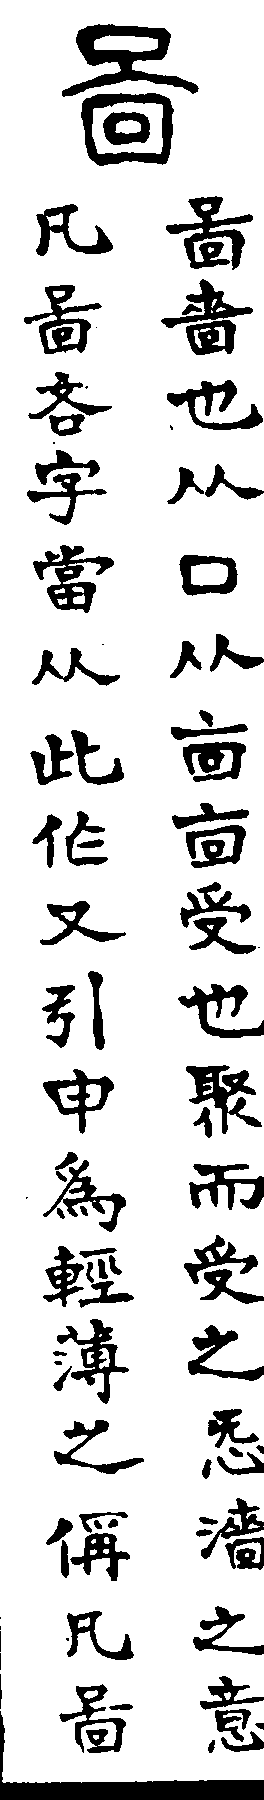 啚
啚嗇也从口从㐭㐭受也聚而受之㤅濇之意
凡啚吝字當从此作又引申爲輕薄之偁凡啚